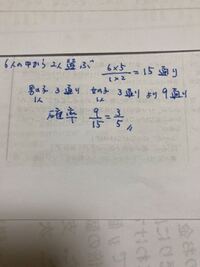 6人の中から 2人 選ぶ 6×5/1×2 = 15 通り
男の子 1人 3通り 女の子 1人 3通り より 9通り
確率 9/15 = 3/5 〃